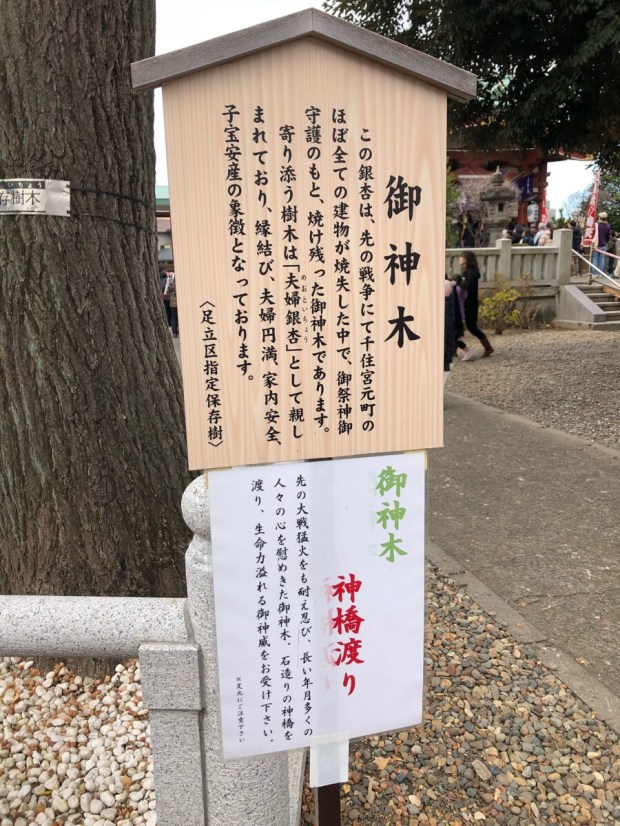 御神木
この銀杏は、先の戦争にて千住宮元町の
ほぼ全ての建物が焼失した中で、御祭神御
守護のもと、焼け残った御神木であります。
寄り添う樹木は「夫婦銀杏」として親し
めおといちょう
まれており、縁結び、夫婦円満、家内安全、
子宝安産の象徴となっております。
〈足立区指定保存樹〉
御神木
神橋渡り
先の大戦猛火をも耐え忍び、長い年月多くの
人々の心を慰めきた御神木。石造りの神橋を
渡り、生命力溢れる御神威をお受け下さい。
※足元にご注意下さい
いちょう
存樹木